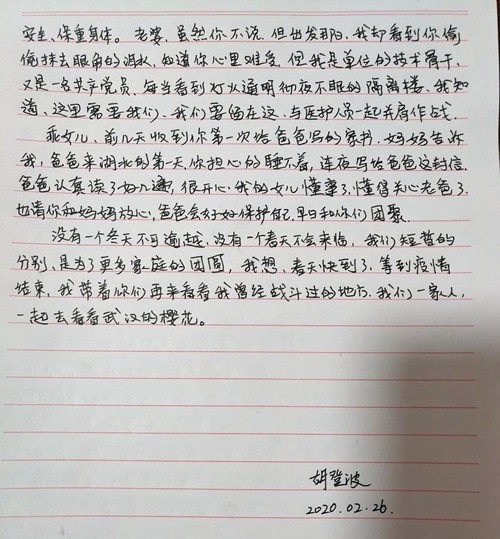 安全、保重身体。老婆,虽然你不说,但出发那日,我却看到你偷
偷抹去眼角的泪水,知道你心里难受,但我是单位的技术骨干,
又是一名共产党员,每当看到灯火通明彻夜不眠的隔离楼,我知
道,这里需要我们,我们要留在这,与医护人员一起并肩作战。
乖女儿,前几天收到你第一次给爸爸写的家书,妈妈告诉
我,爸爸来湖北的第一天,你担心的睡不着,连夜写给爸爸这封信。
爸爸认真读了好几遍,很开心,我的女儿懂事了,懂得关心老爸了。
也请你和妈妈放心,爸爸会好好保护自己,早日和你们团聚。
没有一个冬天不可逾越,没有一个春天不会来临,我们短暂的
分别,是为了更多家庭的团圆,我想,春天快到了,等到疫情
结束,我带着你们再来看看我曾经战斗过的地方,我们一家人,
一起去看看武汉的樱花。
胡登波
2020.02.26.